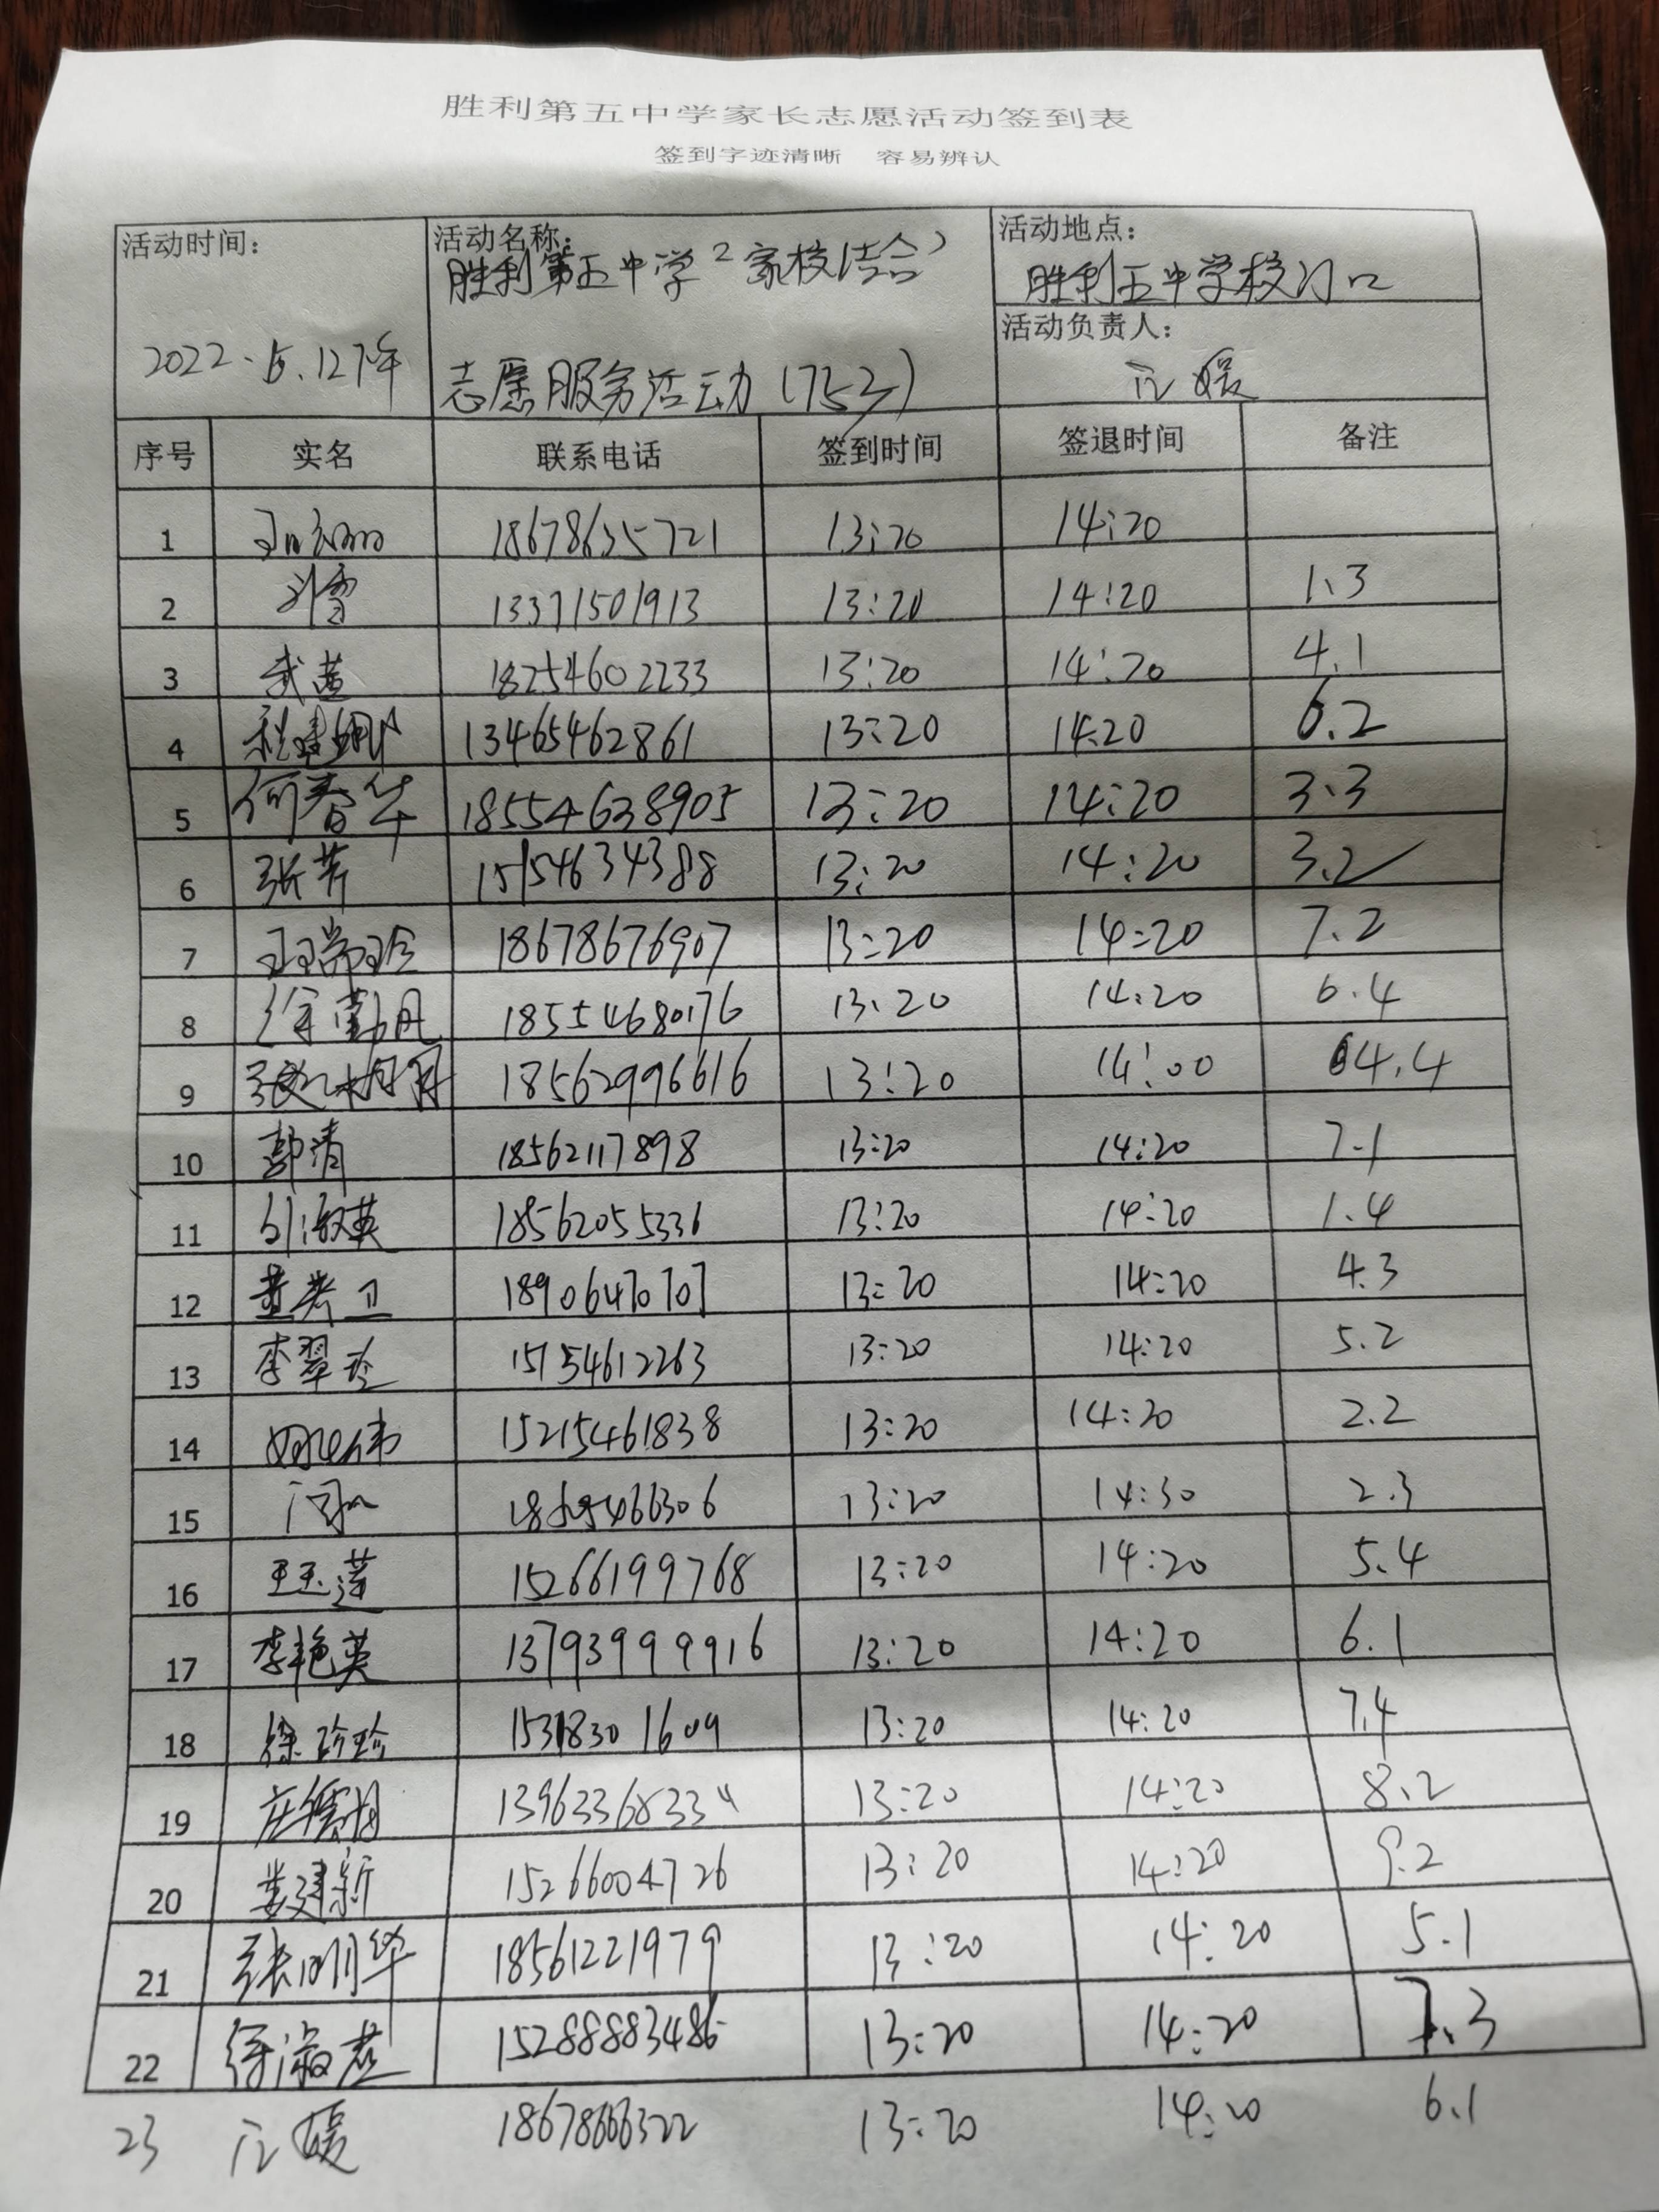 胜利第五中学家长志愿活动签到表
签到字迹清晰 容易辨认
活动时间：
2022.5.12下午
活动名称：
胜利第五中学"家校结合"
志愿服务活动(753)
活动地点：
胜利五中学校门口
活动负责人：
媛
序号 实名 联系电话 签到时间 签退时间 备注
1 18678635721 13:20 14:20
2 刘雪 13371501913 13:20 14:20 1.3
3 武茜 18254602233 13:20 14:20 4.1
4 13465462861 13:20 14:20 6.2
5 何春华 18554638905 13:20 14:20 3.3
6 张芳 15154634388 13:20 14:20 3.2
7 王瑞玲 18678676907 13:20 14:20 7.2
8 徐勤凤 18554680176 13:20 14:20 6.4
9 18562996616 13:20 14:00 4.4
10 郭清 18562117898 13:20 14:20 7.1
11 刘淑英 18562055336 13:20 14:20 1.4
12 18906470707 13:20 14:20 4.3
13 李翠玲 15154612263 13:20 14:20 5.2
14 15215461838 13:20 14:20 2.2
15 13:20 14:30 2.3
16 王玉莲 15266199768 13:20 14:20 5.4
17 李艳英 13793999916 13:20 14:20 6.1
18 徐珍珍 15318301609 13:20 14:20 7.4
19 13:20 14:20 8.2
20 娄建新 15266004726 13:20 14:20
21 张明华 18561221979 13:20 14:20 5.1
22 徐淑燕 15288883486 13:20 14:20 7.3
23 媛 18678666322 13:20 14:20 6.1